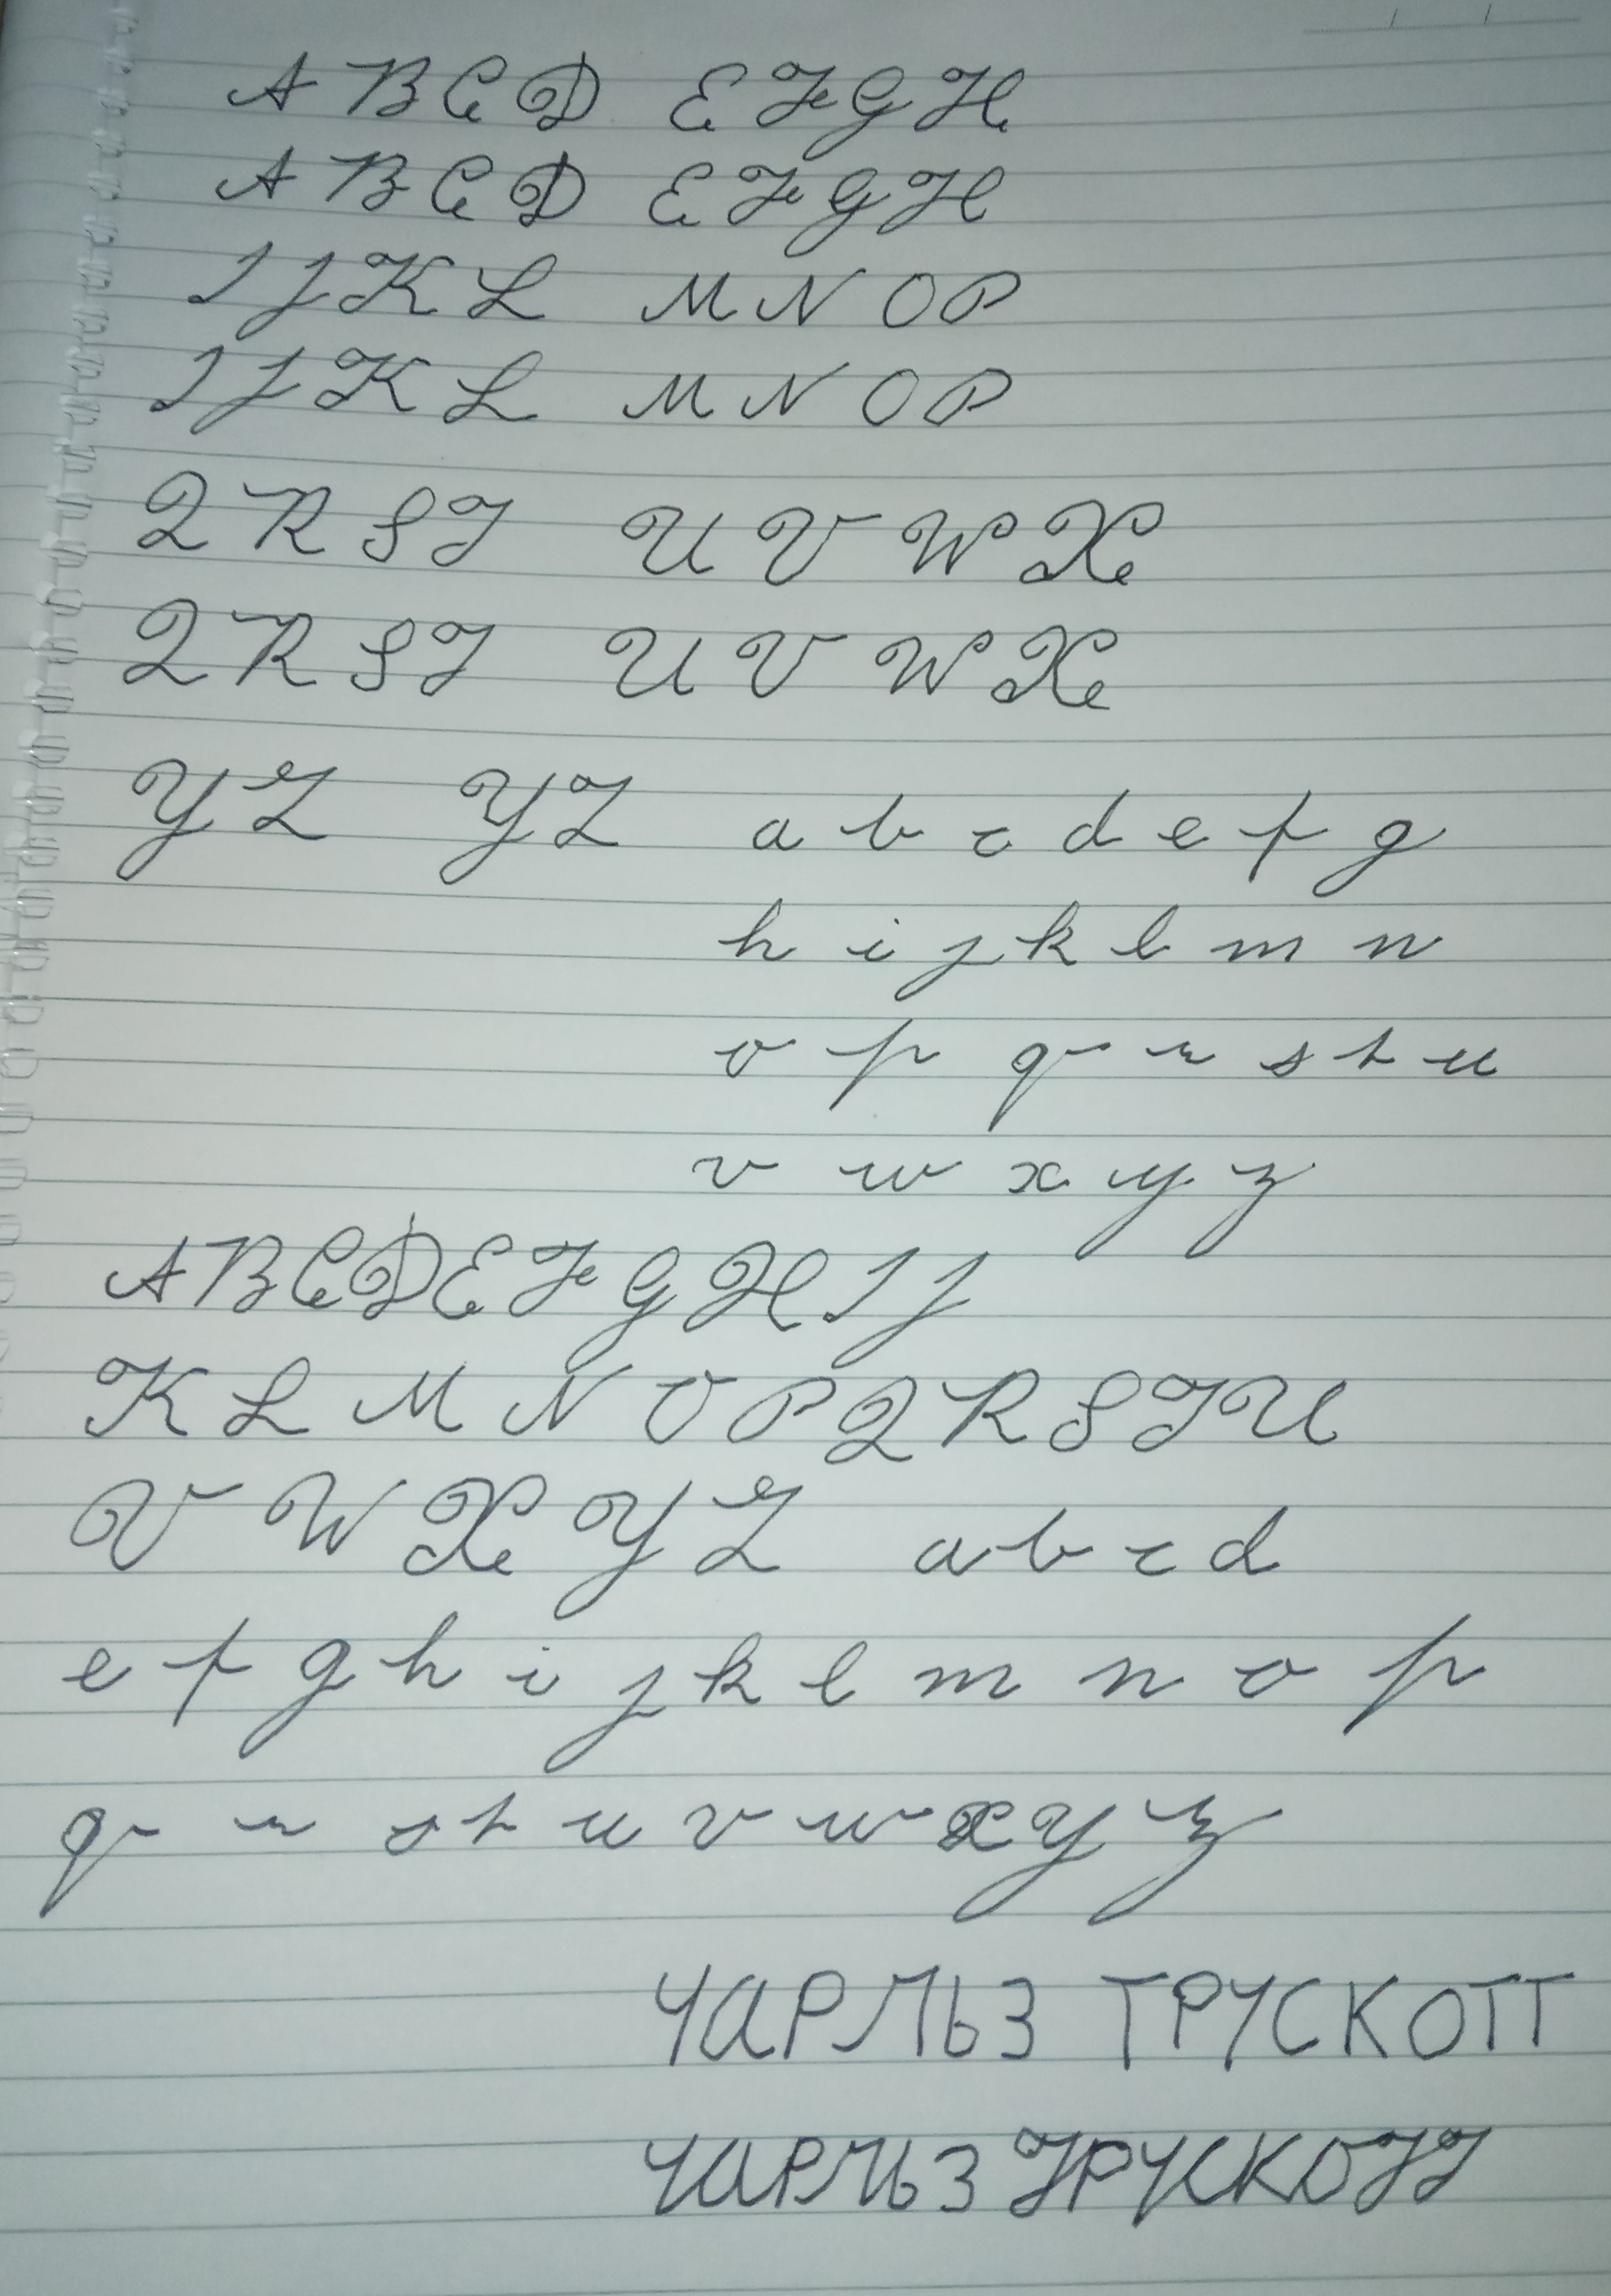 A B C D E F G H
A B C D E F G H
I J K L M N O P
I J K L M N O P
Q R S T U V W X
Q R S T U V W X
Y Z Y Z a b c d e f g
h i j k l m n
o p q r s t u
v w x y z
A B C D E F G H I J
K L M N O P Q R S T U
V W X Y Z a b c d
e f g h i j k l m n o p
q r s t u v w x y z
ЧАРЛЬЗ ТРУСКОТТ
ЧАРЛЬЗ ТРУСКОТТ